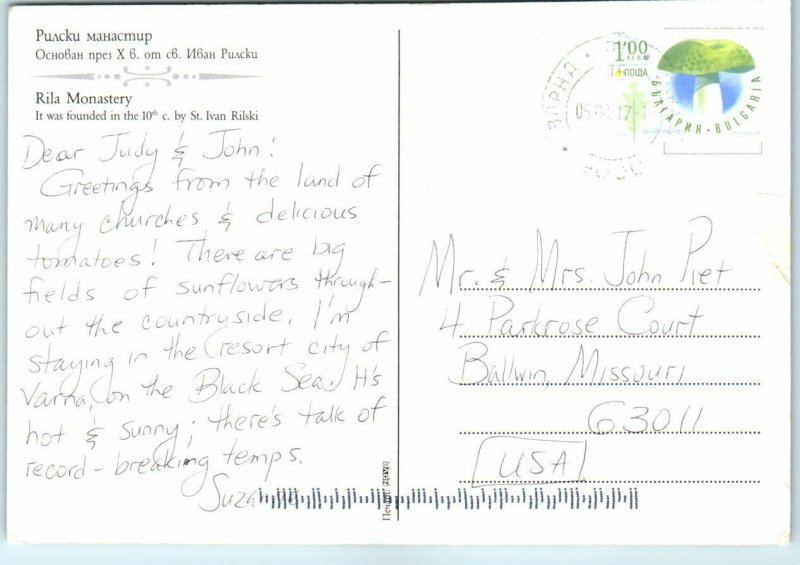 Рилски манастир
Основан през X в. от св. Иван Рилски
Rila Monastery
It was founded in the 10th c. by St. Ivan Rilski
Dear Judy & John!
Greetings from the land of
many churches & delicious
tomatoes! There are big
fields of sunflowers through-
out the countryside. I'm
staying in the resort city of
Varna, on the Black Sea. It's
hot & sunny; there's talk of
record-breaking temps.
1'00
ЛЕВА
ПОЩА
БЪЛГАРИЯ • BULGARIA
ВАРНА
Mr. & Mrs. John Piet
4 Parkrose Court
Ballwin, Missouri
63011
USA